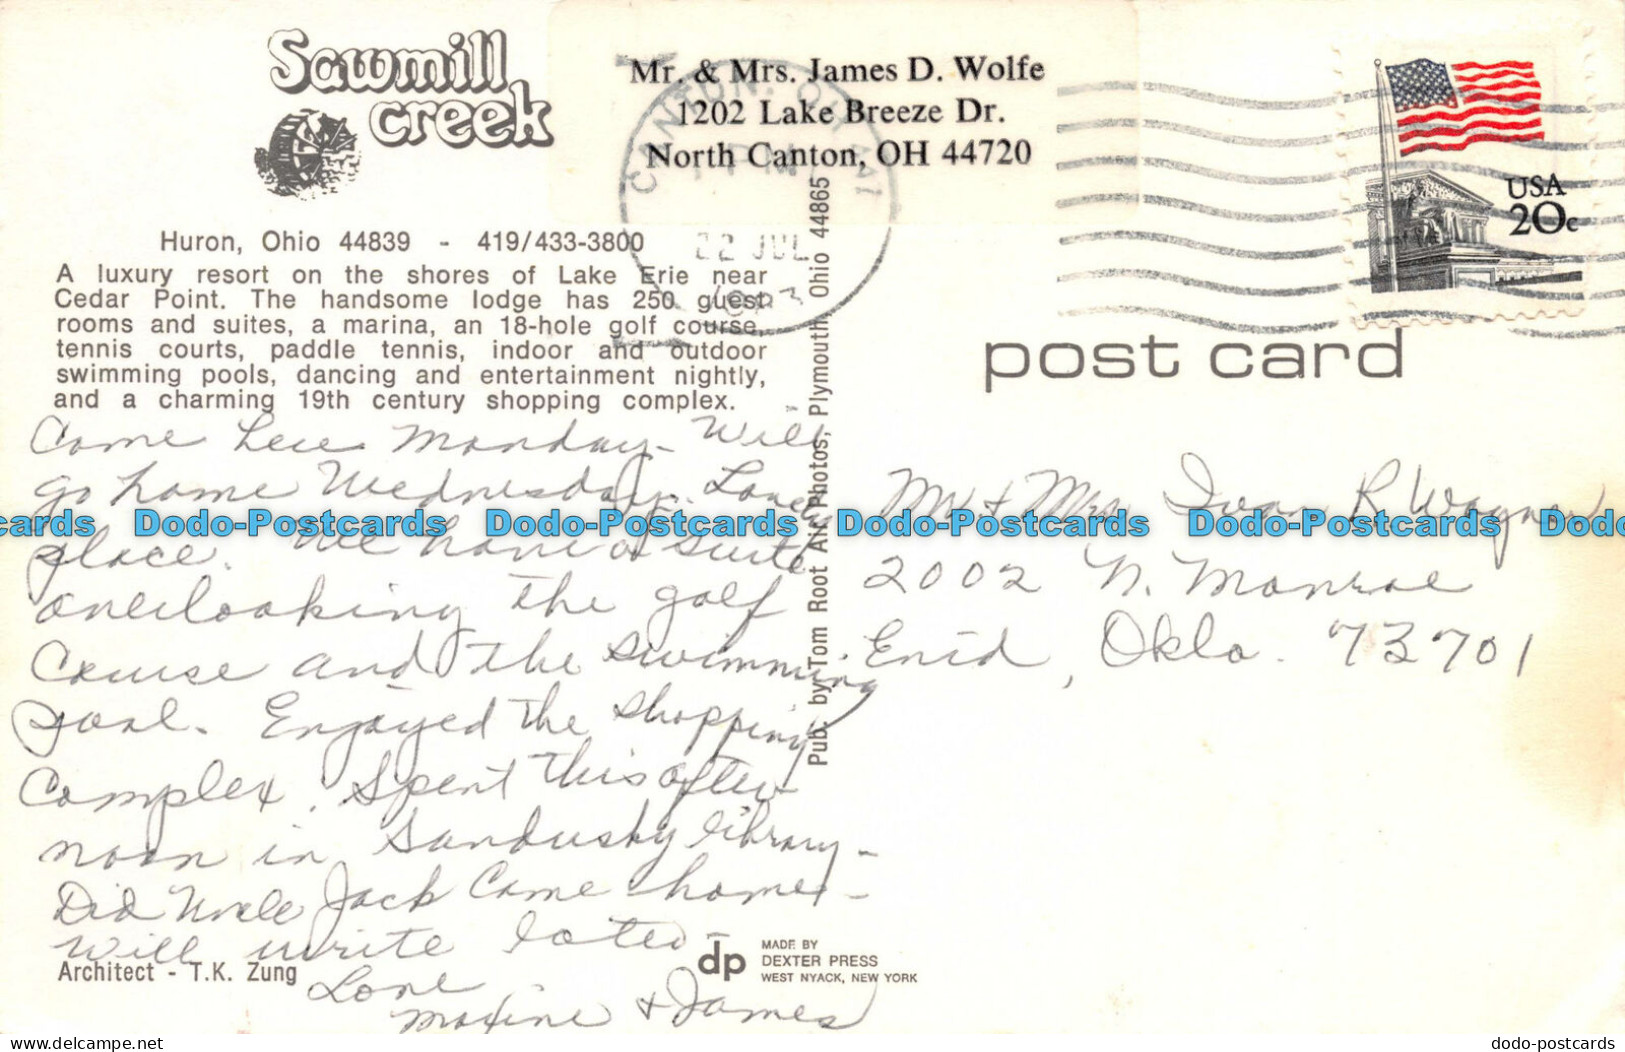 Sawmill
creek
Huron, Ohio 44839 - 419/433-3800
A luxury resort on the shores of Lake Erie near
Cedar Point. The handsome lodge has 250 guest
rooms and suites, a marina, an 18-hole golf course,
tennis courts, paddle tennis, indoor and outdoor
swimming pools, dancing and entertainment nightly,
and a charming 19th century shopping complex.
Come here Monday - Will
go home Wednesday. Lovely
place. We have a suite
overlooking the golf
course and the swimming
pool. Enjoyed the shopping
complex. Spent this after-
noon in Sandusky library -
Did Uncle Jack come home? -
Will write later -
Love
Maxine & James
Architect - T.K. Zung
dp
MADE BY
DEXTER PRESS
WEST NYACK, NEW YORK
Pub. by Tom Root Air Photos, Plymouth, Ohio 44865
Mr. & Mrs. James D. Wolfe
1202 Lake Breeze Dr.
North Canton, OH 44720
CANTON, OH
PM
22 JUL
1983
USA
20c
post card
Mr + Mrs Ivan R Wayner
2002 N. Monroe
Enid, Okla. 73701
Dodo-Postcards Dodo-Postcards Dodo-Postcards Dodo-Postcards
dodo-postcards.com
dodo-postcards.com